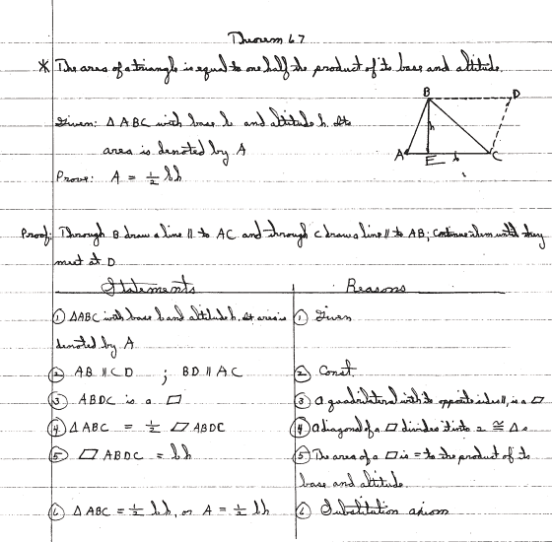 Theorem 67
* The area of a triangle is equal to one half the product of its base and altitude.
B D
Given: △ABC with base b and altitude h. Its
h
area is denoted by A
A E b C
Prove: A = ½ bh
Proof: Through B draw a line || to AC and through C draw a line || to AB; continue them until they
meet at D
Statements Reasons
① △ABC with base b and altitude h. Its area is ① Given
denoted by A
② AB || CD ; BD || AC ② Const.
③ ABDC is a ▱ ③ a quadrilateral with its opposite sides ||, is a ▱
④ △ABC = ½ ▱ ABDC ④ a diagonal of a ▱ divides it into 2 ≅ △s
⑤ ▱ ABDC = bh ⑤ The area of a ▱ is = to the product of its
base and altitude.
⑥ △ABC = ½ bh, or A = ½ bh ⑥ Substitution axiom